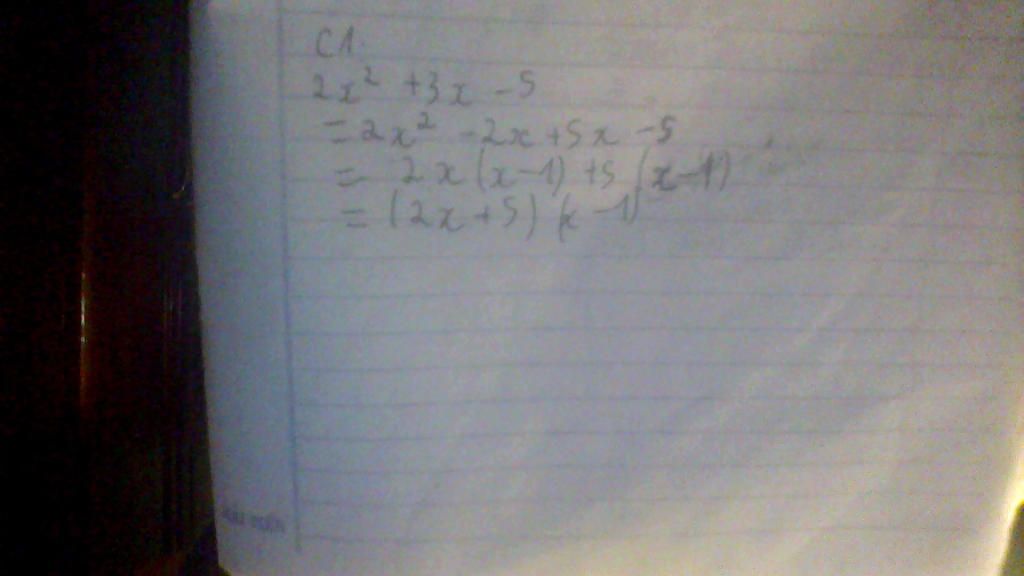 C1.
2x² + 3x - 5
= 2x² - 2x + 5x - 5
= 2x(x-1) + 5(x-1)
= (2x+5)(x-1)